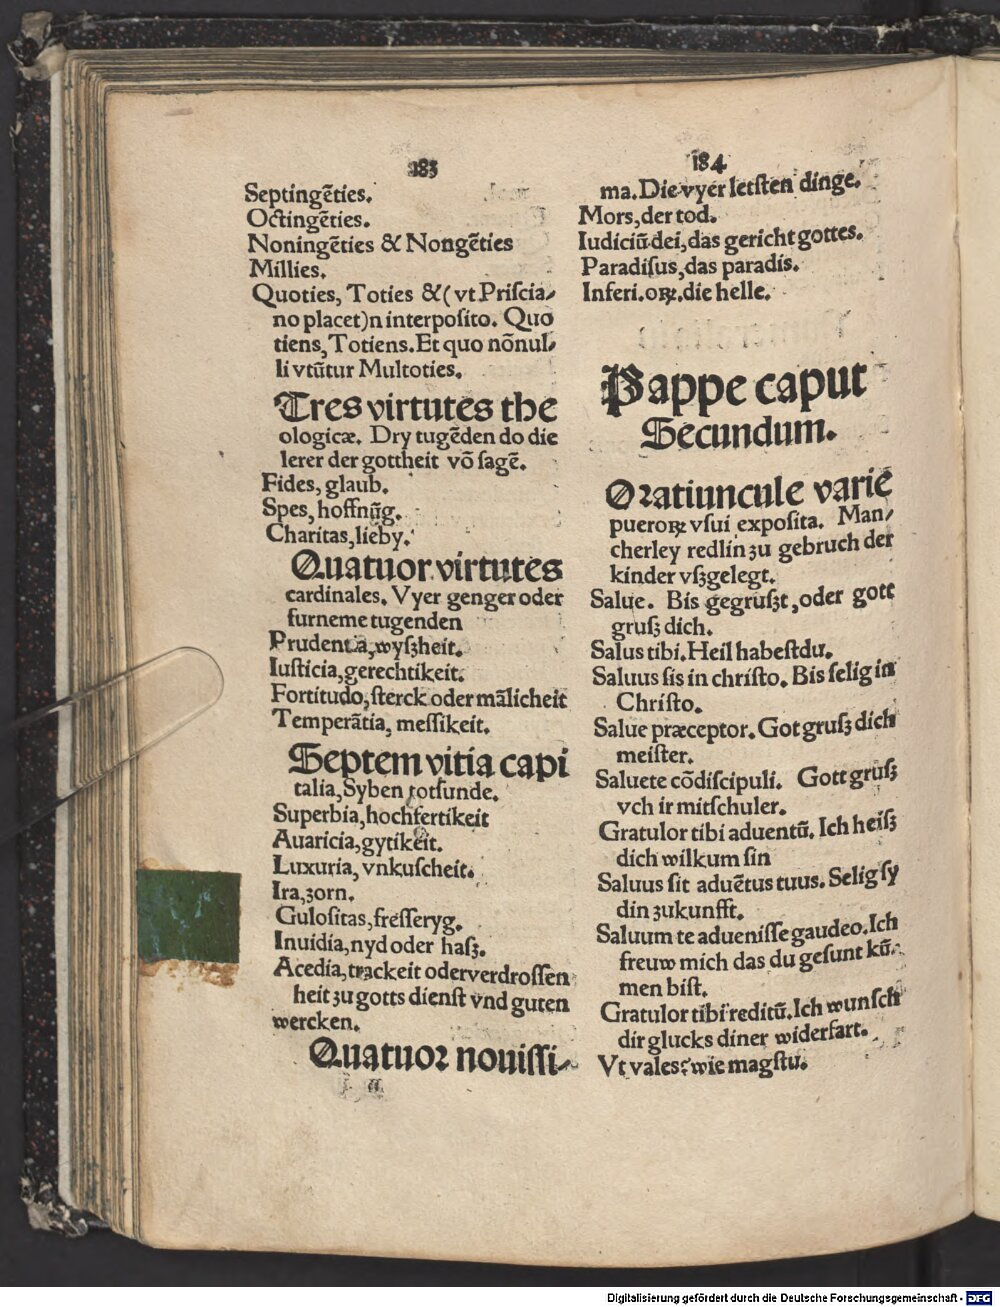 183
Septingẽties.
Octingẽties.
Noningẽties & Nongẽties
Millies.
Quoties, Toties &( vt Priscia⸗
no placet)n interposito. Quo
tiens, Totiens. Et quo nõnul⸗
li vtũtur Multoties.
Tres virtutes the
ologicæ. Dry tugẽden do die
lerer der gottheit võ sagẽ.
Fides, glaub.
Spes, hoffnũg.
Charitas, lieby.
Quatuor virtutes
cardinales. Vyer genger oder
furneme tugenden
Prudentia, wyszheit.
Iusticia, gerechtikeit.
Fortitudo, sterck oder mãlicheit
Temperãtia, messikeit.
Septem vitia capi
talia, Syben totsunde.
Superbia, hochfertikeit
Auaricia, gytikeit.
Luxuria, vnkuscheit.
Ira, zorn.
Gulositas, fresseryg.
Inuidia, nyd oder hasz.
Acedia, trackeit oder verdrossen
heit zu gotts dienst vnd guten
wercken.
Quatuor nouissi⸗
184
ma. Die vyer letsten dinge.
Mors, der tod.
Iudiciũ dei, das gericht gottes.
Paradisus, das paradis.
Inferi.oꝝ. die helle.
Pappe caput
Secundum.
Oratiuncule varie
pueroꝝ vsui exposita. Man⸗
cherley redlin zu gebruch der
kinder vszgelegt.
Salue. Bis gegruszt, oder gott
grusz dich.
Salus tibi. Heil habestdu.
Saluus sis in christo. Bis selig in
Christo.
Salue præceptor. Got grusz dich
meister.
Saluete cõdiscipuli. Gott grusz
vch ir mitschuler.
Gratulor tibi aduentũ. Ich heisz
dich wilkum sin
Saluus sit aduẽtus tuus. Selig sy
din zukunfft.
Saluum te aduenisse gaudeo. Ich
freuw mich das du gesunt kũ⸗
men bist.
Gratulor tibi reditũ. Ich wunsch
dir glucks diner widerfart.
Vt vales? wie magstu.
Digitalisierung gefördert durch die Deutsche Forschungsgemeinschaft - DFG